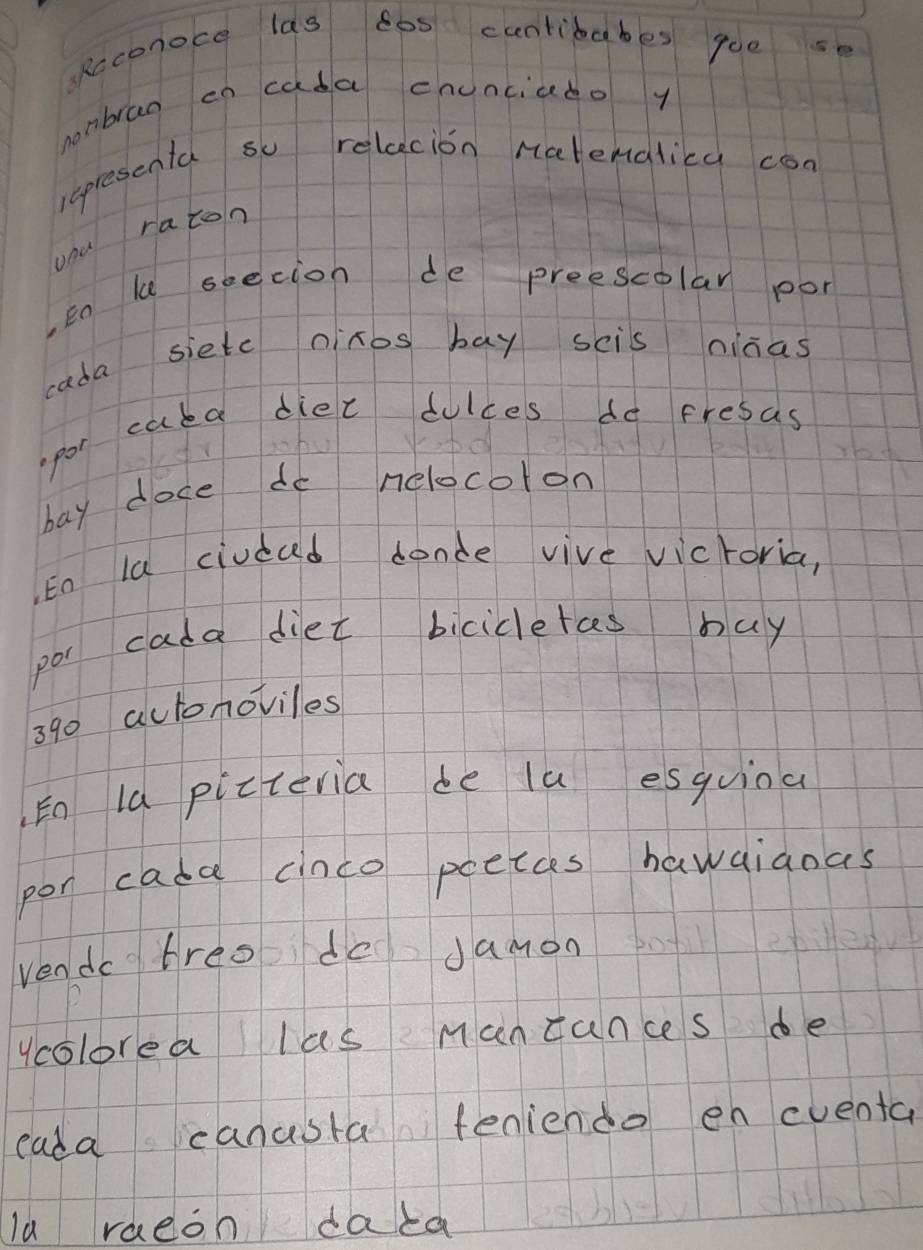 3Reconoce las dos cantidades que se
nombran en cada enunciado y
representa su relación matematica con
una razon
.En la seecion de preescolar por
cada siete niños hay seis niñas
.por cada diez dulces de fresas
hay doce de melocoton
.En la ciudad donde vive victoria,
por cada diez bicicletas hay
390 automóviles
.En la pizzeria de la esquina
por cada cinco pcezas hawaianas
vende tres de Jamon
4colorea las manzanas de
cada canasta teniendo en cuenta
la raeón dada